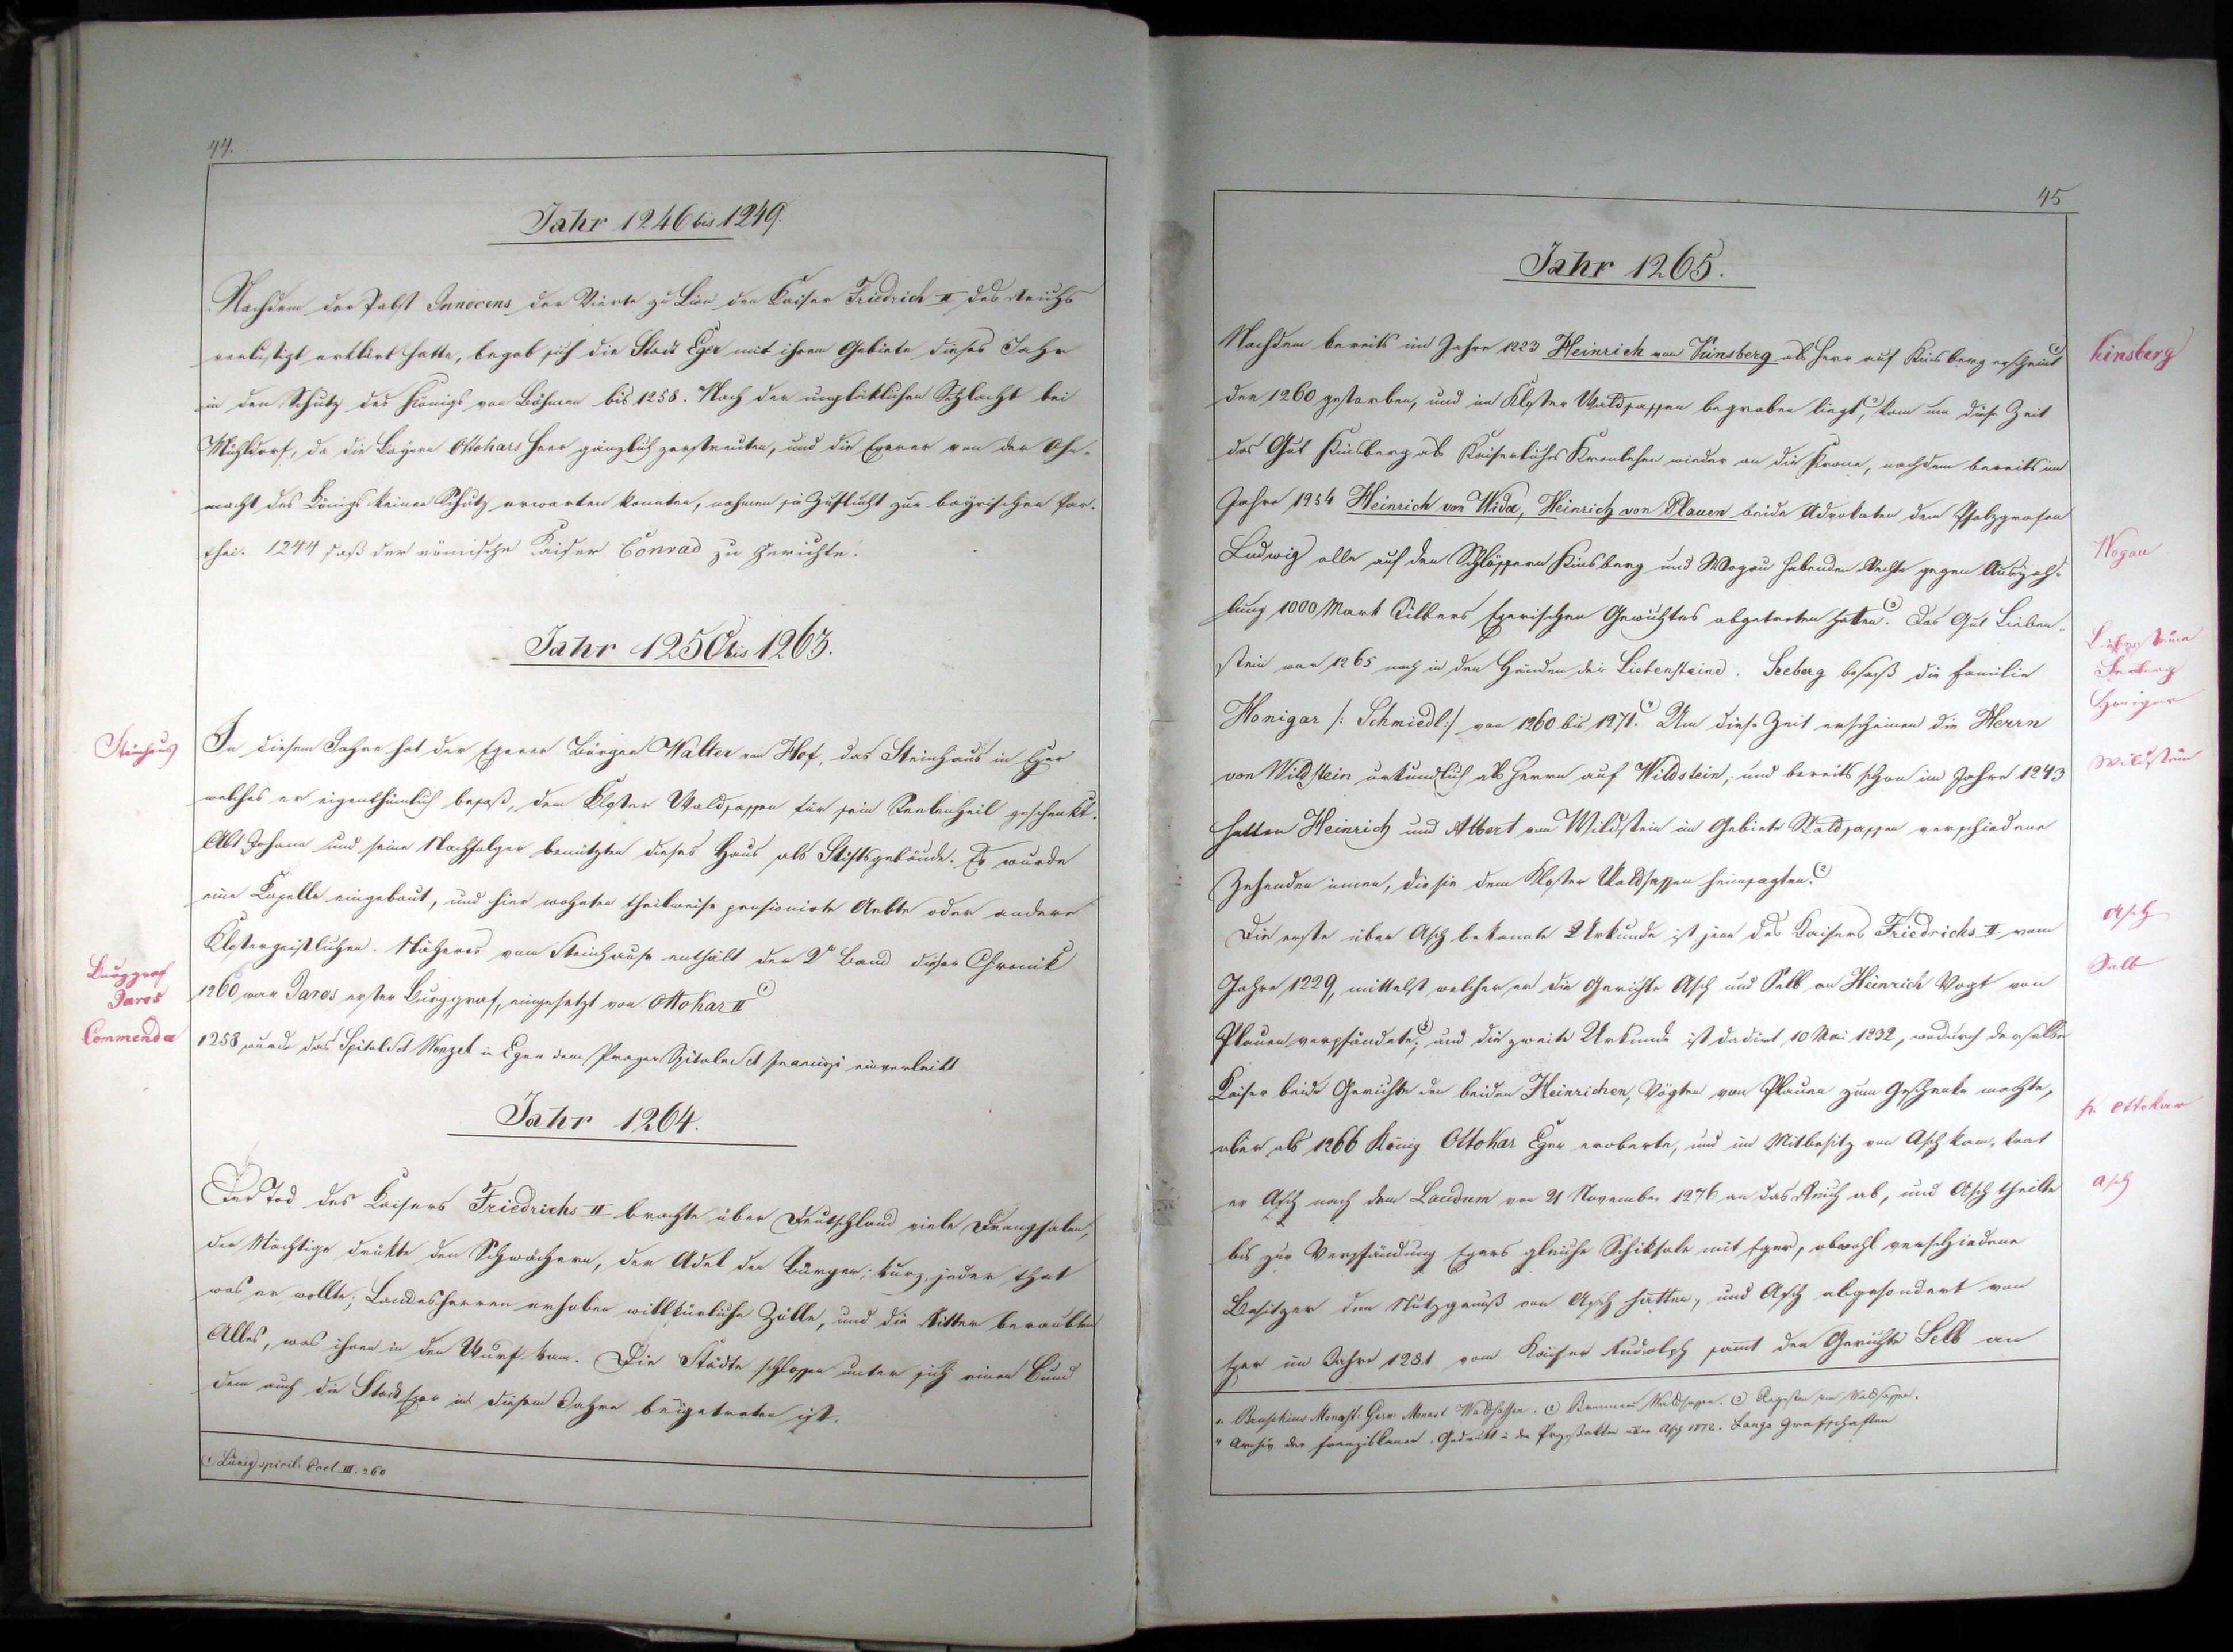 44.
Jahr 1246 bis 1249.
Nachdem der Pabst Innocens der Vierte zu Lion den Kaiser Friedrich II des Reichs
verlustigt erklärt hatte, begab sich die Stadt Eger mit ihrem Gebiete dieses Jahr
in den Schutz des Königs von Böhmen bis 1258. Nach der unglüklichen Schlacht bei
Mühldorf, da die Bayern Ottokars Heer gänzlich zerstreuten, und die Egerer von der Ohn-
macht des Königs keinen Schutz erwarten konnten, nahmen sie Zuflucht zur bayrischen Par-
thei. 1244 saß der römische Kaiser Conrad zu Gerichte.
Jahr 1250 bis 1263.
Steinhaus
In diesem Jahre hat der Egerer Bürger Walter von Hof, das Steinhaus in Eger
welches er eigenthümlich besaß, dem Kloster Waldsassen für sein Seelenheil geschenkt.
Abt Johann und seine Nachfolger benützten dieses Haus als Stiftsgebäude. Es wurde
eine Kapelle eingebaut, und hier wohnten theilweise pensionirte Aebte oder andere
Klostergeistlichen. Näheres vom Steinhause enthält der 2r Band dieser Chronik
Burggraf
Jaros
1260 war Jaros erster Burggraf, eingesetzt von Ottokar II 1)
Commenda
1258 wurde das Spital St Wenzel in Eger dem Prager Spitale St Francizi einverleibt
Jahr 1264.
Der Tod des Kaisers Friedrichs II brachte über Deutschland viele Drangsalen,
der Mächtige drükte den Schwächern, der Adel den Bürger; kurz, jeder that
was er wollte; Landesherren erhoben willkürliche Zölle, und die Ritter beraubten
Alles, was ihnen in den Wurf kam. Die Städte schlossen unter sich einen Bund
dem auch die Stadt Eger in diesem Jahre beigetreten ist.
1) Lünig spicil. Eccl. III. 260
45
Jahr 1265.
Nachdem bereits im Jahre 1223 Heinrich von Kinsberg als Herr auf Kinsberg erscheint 1)
Kinsberg
der 1260 gestorben, und im Kloster Waldsassen begraben liegt, 2) kam um diese Zeit
das Gut Kinsberg als Kaiserliches Kronlehen wieder an die Krone, nachdem bereits im
Jahre 1254 Heinrich von Wida, Heinrich von Plauen beide Advokaten dem Pfalzgrafen
Ludwig alle auf den Schlössern Kinsberg und Wogau habenden Rechte gegen Auszah-
Wogau
lung 1000 Mark Silbers Egerischen Gewichtes abgetreten hatten. 3) Das Gut Lieben-
Liebenstein
stein war 1265 noch in den Händen der Liebensteine. Seeberg besaß die Familie
Seeberg
Honigar
Honigar /: Schmiedl :/ von 1260 bis 1271. 4) Um diese Zeit erscheinen die Herrn
von Wildstein urkundlich als Herrn auf Wildstein, und bereits schon im Jahre 1243
Wildstein
hatten Heinrich und Albert von Wildstein im Gebiete Waldsassen verschiedene
Zehenden innen, die sie dem Kloster Waldsassen heimsagten. 2)
Die erste über Asch bekannte Urkunde ist jene des Kaisers Friedrichs II vom
Asch
Jahre 1229, mittelst welcher er die Gerichte Asch und Selb an Heinrich Vogt von
Selb
Plauen verpfändete, 3) und die zweite Urkunde ist dadirt 10 Mai 1232, wodurch derselbe
Kaiser beide Gerichte den beiden Heinrichen, Vögten von Plauen zum Geschenke machte,
aber als 1266 König Ottokar Eger eroberte, und in Mitbesitz von Asch kam, trat
Ottokar
er Asch nach dem Laudum von 21 November 1276 an das Reich ab, und Asch theilte
Asch
bis zur Verpfändung Egers gleiche Schiksale mit Eger, obwohl verschiedene
Besitzer den Nutzgenuß von Asch hatten, und Asch abgesondert von
Eger im Jahre 1281 vom Kaiser Rudolph samt den Gerichte Selb an
1) Bruschius Monast. Germ. Waldsassen. 2) Waldsassen. 3) Regesten von Waldsassen.
4) Archiv der Franziskaner. Gedrukt in den Prozeßakten über Asch 1772. Langs Grafschaften